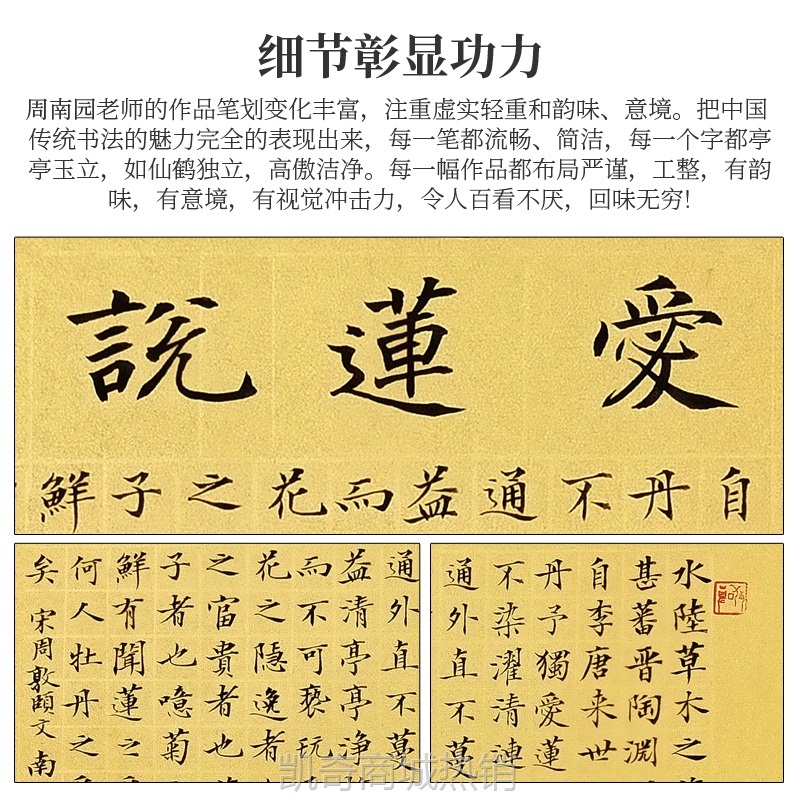 细节彰显功力
周南园老师的作品笔划变化丰富，注重虚实轻重和韵味、意境。把中国
传统书法的魅力完全的表现出来，每一笔都流畅、简洁，每一个字都亭
亭玉立，如仙鹤独立，高傲洁净。每一幅作品都布局严谨，工整，有韵
味，有意境，有视觉冲击力，令人百看不厌，回味无穷!
愛蓮說
自丹不通益而花之子鮮
通外直不蔓
益清亭亭淨
而不可褻玩
花之隱逸者
之富貴者也
子者也噫菊
鮮有聞蓮之
何人牡丹之
矣 宋周敦頤文 南
水陸草木之
甚蕃晉陶淵
自李唐来世
丹予獨愛蓮
不染濯清漣
通外直不蔓
凯奇商城热销